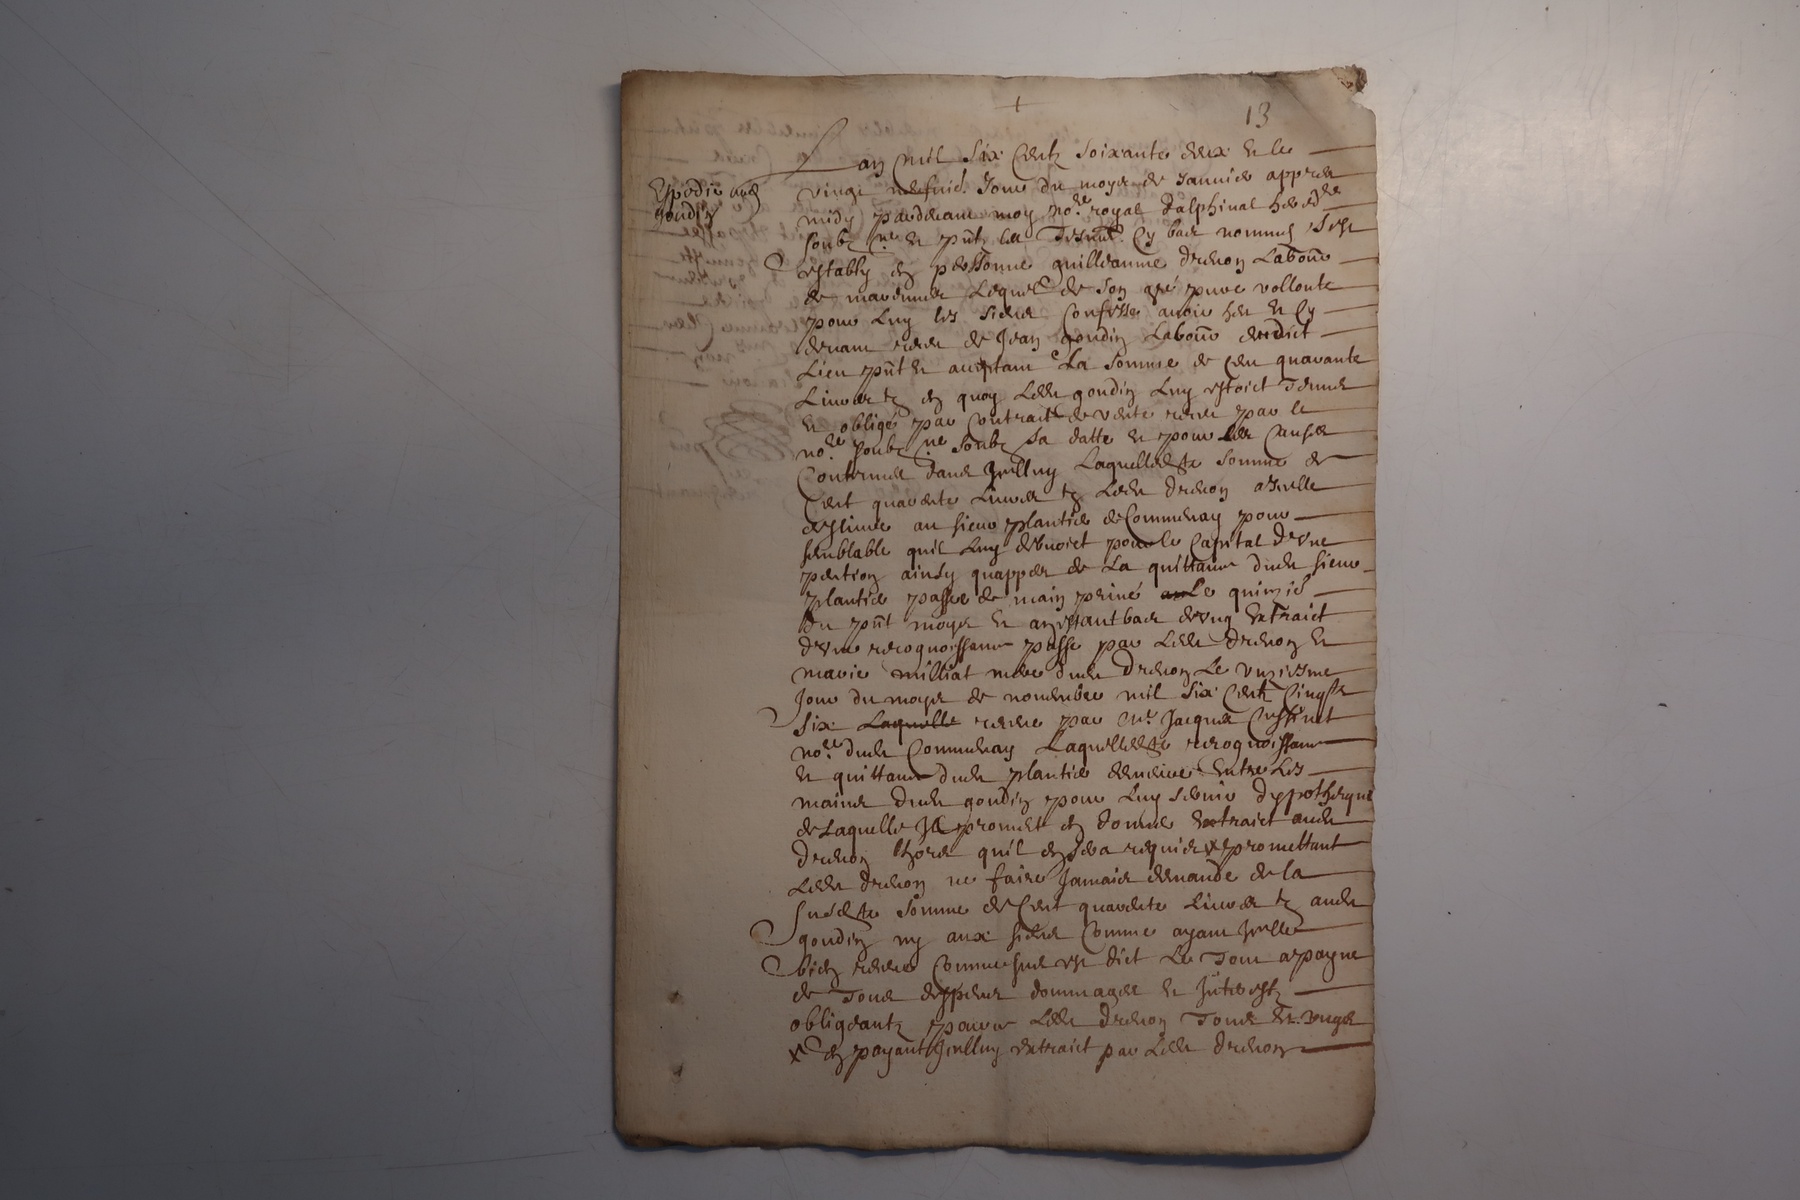 13
Expedie aud
goudin
Lan mil six centz soixante deux et le
vingt neufvie. Jour du moys de Janvier appres
midy pardevant moy no.re royal dalphinal hered.re
soubz.ne et pntz les tesmt. cy bas nommes sest
estably en personne guilleaume drevon Labour
de marennes Lequel de son gré pure vollonte
pour Luy les siens confesse avoir heu et cy
devant receu de Jean goudin Labour dudict
Lieu pnt et aceptant La somme de cen quarante
Livres tz en quoy Led goudin Luy estoict tenu
et obligé par contraict de vente receu par le
no.re soubz.ne soubz sa datte et pour les causes
contenues dans Icelluy Laquelle somme de
Cent quarente Livres tz Led drevon a Icelle
destinee au sieur plantie de Communay pour
semblable quil Luy debvoict pour le capital dune
pention ainsy quappert de La quittance dud sieur
plantie passee de main privé Le quinzie
du pnt moys et au estant bas dung extraict
dune recognoissance passe par Led drevon et
marie milliat mere dud drevon Le unziesme
Jour du moys de novembre mil six centz cinqte
six Laquelle receue par Me Jacques
no.re dud Communay Laquelle recognoissance
et quittance dud plantie demeure entre Les
mains dud goudin pour Luy servir dypotheque
de Laquelle Il promet en donner extraict aud
drevon lhors quil en sera requis x promettant
Led drevon ne faire Jamais demande de la
susd somme de Cent quarente Livres tz aud
goudin ny aux siens comme ayant Icelle
bien receue comme sus est dict Le tout a payne
de tous despens dommages et Interestz
obligeantz pour ce Led drevon tous et ungs
x en payant Icelluy extraict par Led drevon